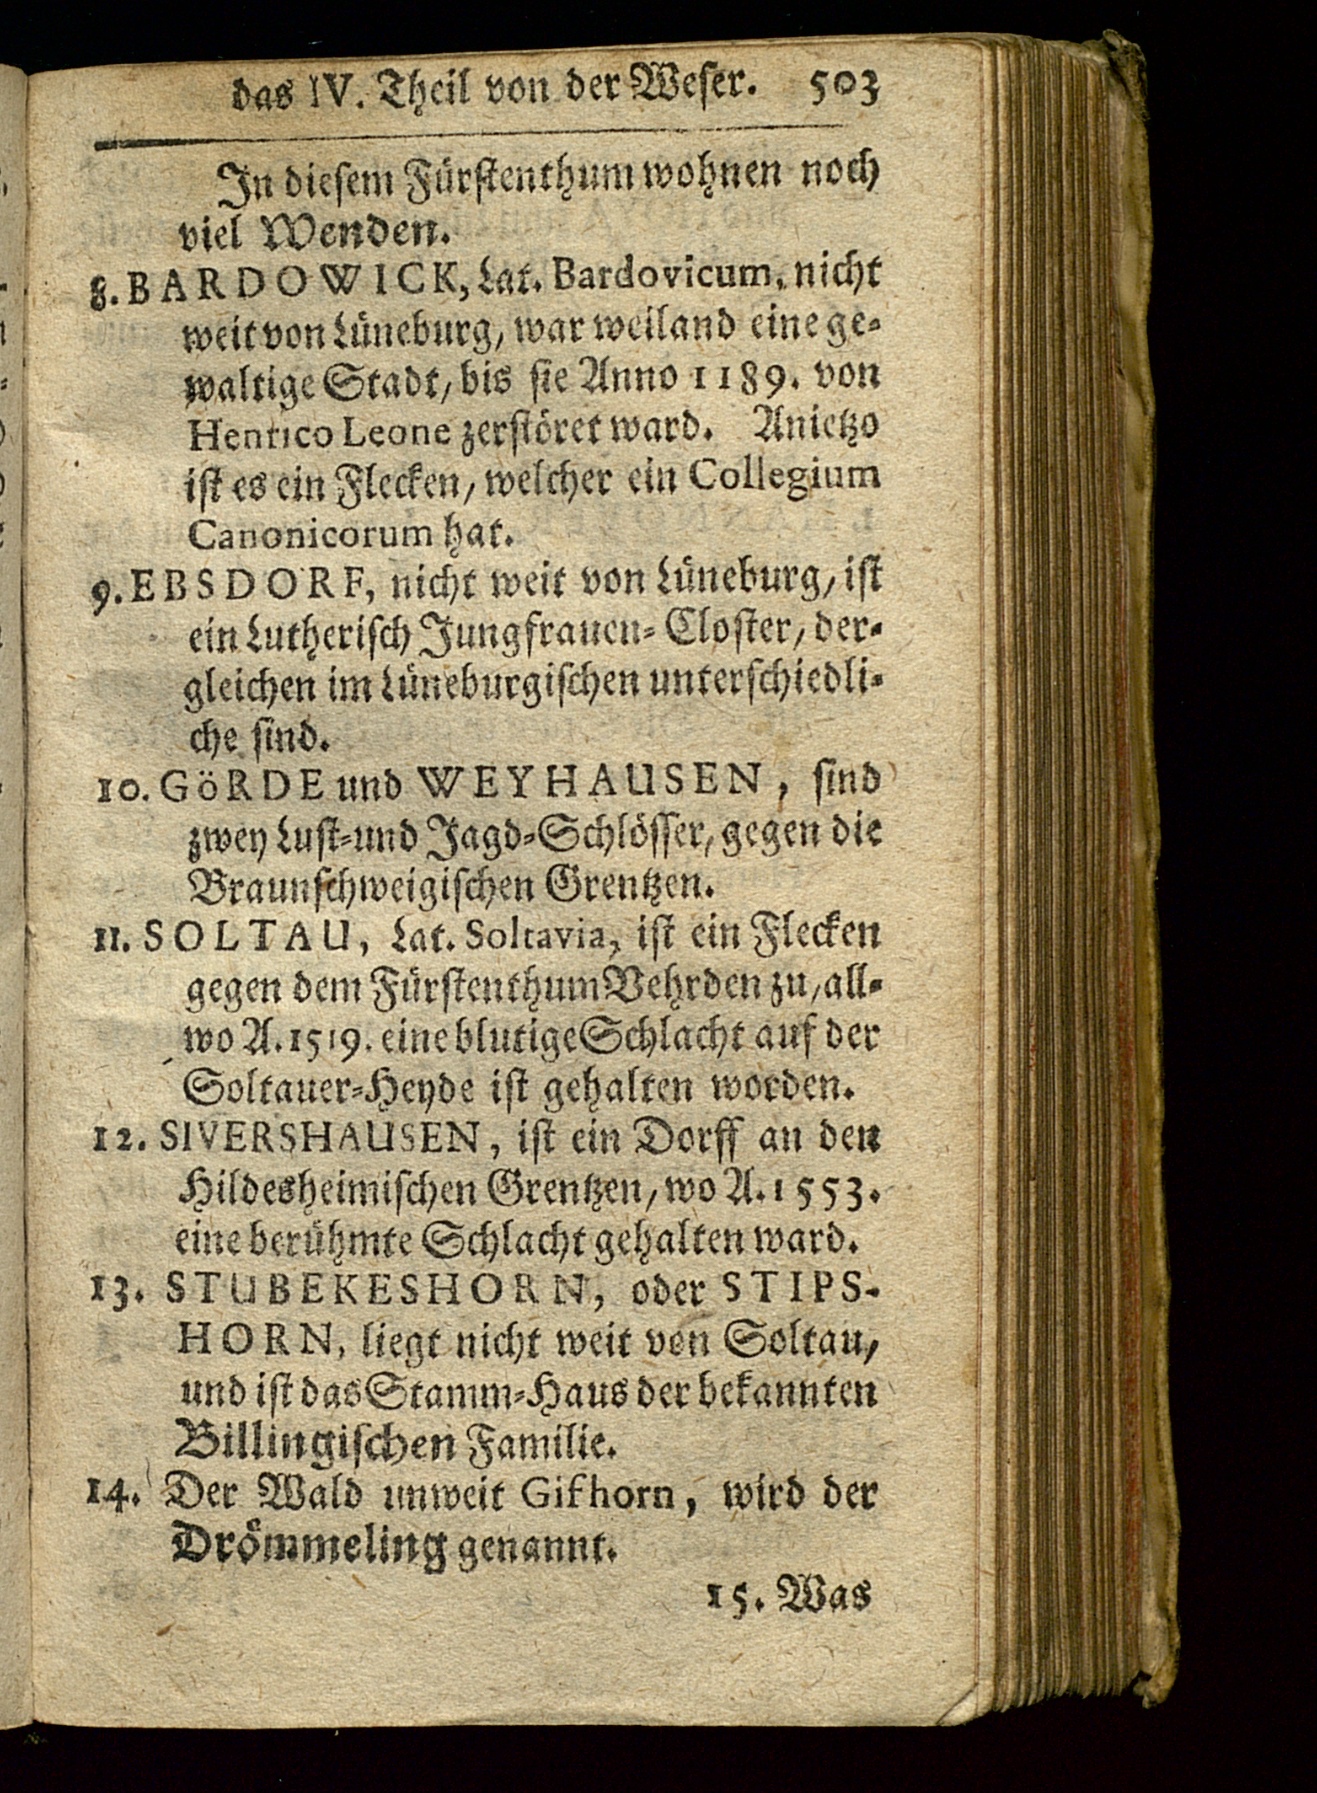 das IV. Theil von der Weser. 503
In diesem Fürstenthum wohnen noch
viel Wenden.
8. BARDOWICK, Lat. Bardovicum, nicht
weit von Lüneburg, war weiland eine ge-
waltige Stadt, bis sie Anno 1189. von
Henrico Leone zerstöret ward. Anietzo
ist es ein Flecken, welcher ein Collegium
Canonicorum hat.
9. EBSDORF, nicht weit von Lüneburg, ist
ein Lutherisch Jungfrauen-Closter, der-
gleichen im Lüneburgischen unterschiedli-
che sind.
10. GöRDE und WEYHAUSEN, sind
zwey Lust-und Jagd-Schlösser, gegen die
Braunschweigischen Grentzen.
11. SOLTAU, Lat. Soltavia, ist ein Flecken
gegen dem Fürstenthum Vehrden zu, all-
wo A. 1519. eine blutige Schlacht auf der
Soltauer-Heyde ist gehalten worden.
12. SIVERSHAUSEN, ist ein Dorff an den
Hildesheimischen Grentzen, wo A. 1553.
eine berühmte Schlacht gehalten ward.
13. STUBEKESHORN, oder STIPS-
HORN, liegt nicht weit von Soltau,
und ist das Stamm-Haus der bekannten
Billingischen Familie.
14. Der Wald unweit Gifhorn, wird der
Drömmeling genannt.
15. Was